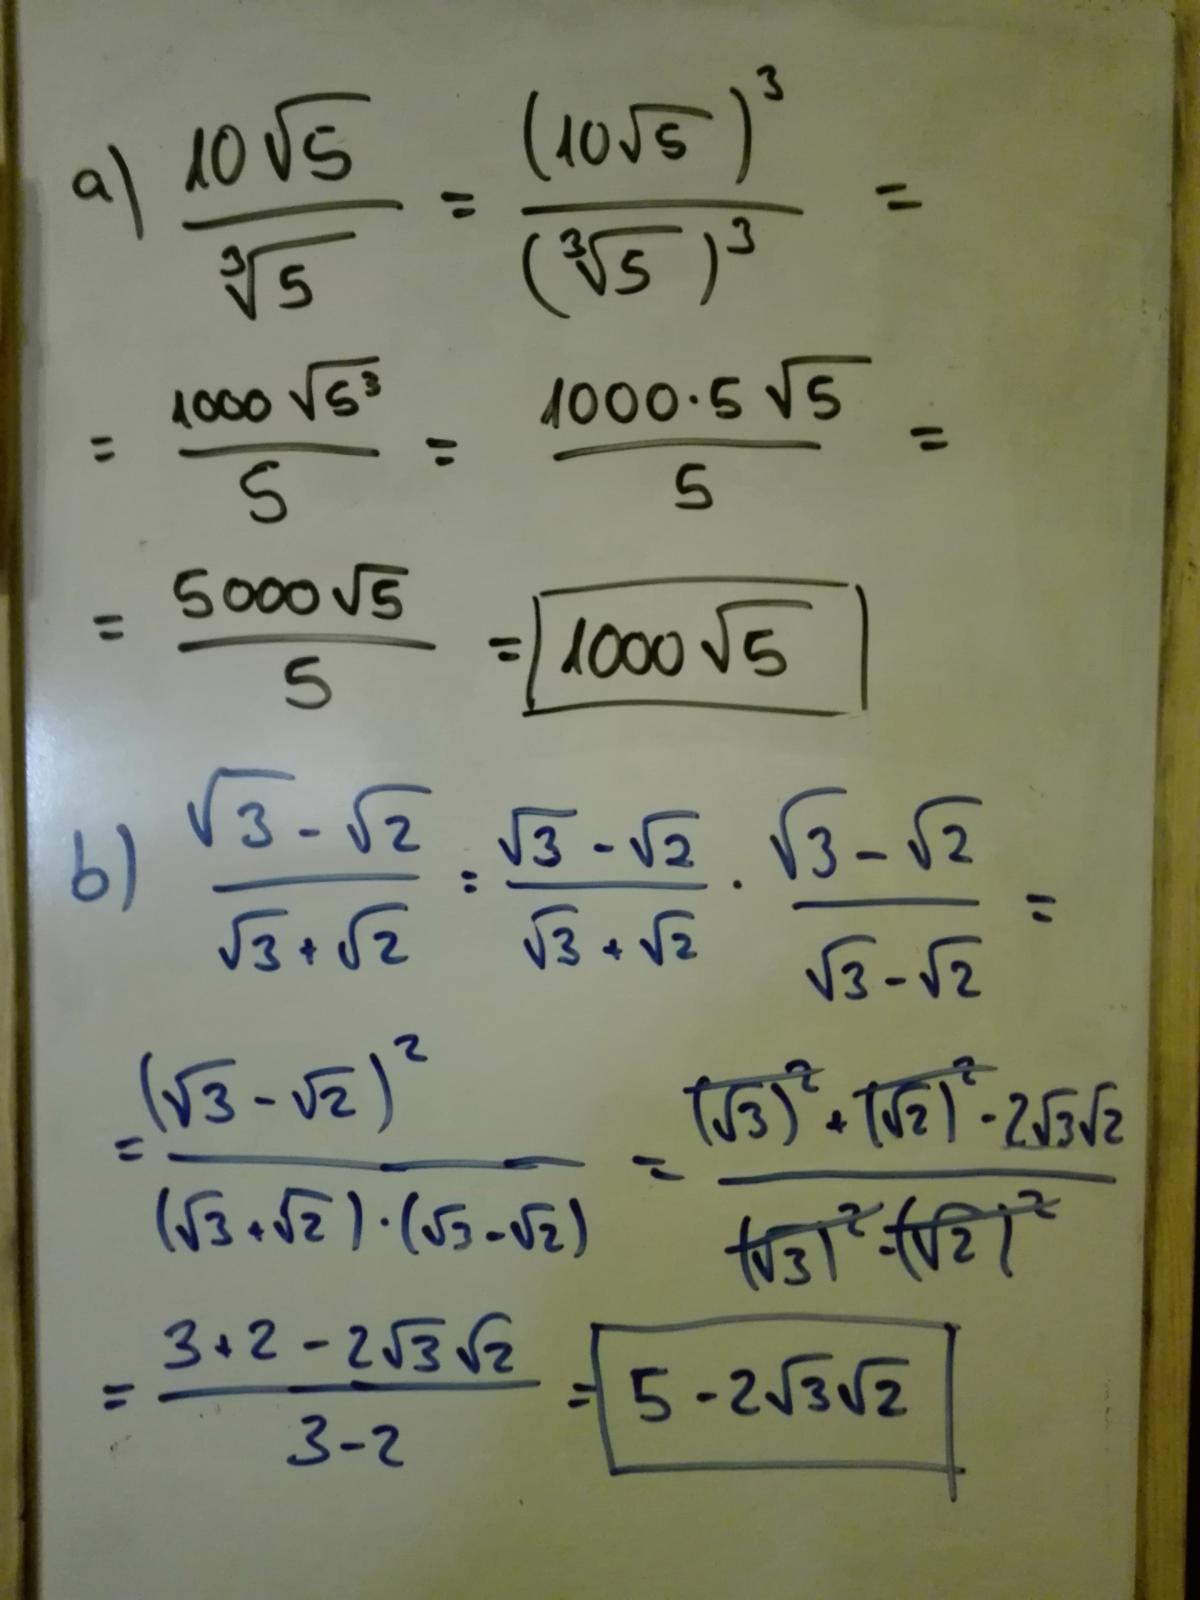 a) 10√5 / ∛5 = (10√5)³ / (∛5)³ =
= 1000√5³ / 5 = 1000·5√5 / 5 =
= 5000√5 / 5 = 1000√5
b) √3 - √2 / √3 + √2 = √3 - √2 / √3 + √2 · √3 - √2 / √3 - √2 =
= (√3 - √2)² / (√3 + √2)·(√3 - √2) = (√3)² + (√2)² - 2√3√2 / (√3)² - (√2)²
= 3 + 2 - 2√3√2 / 3 - 2 = 5 - 2√3√2